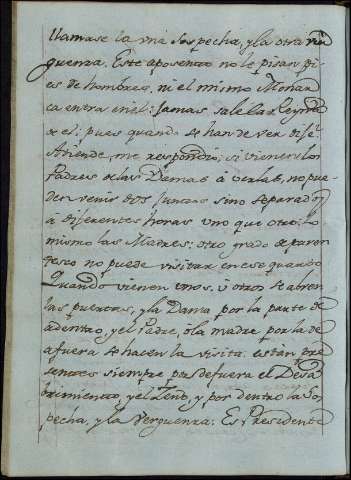 llamase la una Sospecha, y la otra Ver
guenza. Este aposento no le pisan pi
es de hombres, ni el mismo Monar
ca entra en él: Jamas sale la Reyna
de el; pues quando se han de ver dije?
Atiende, me respondio; si vienen los
Padres de las Damas á verlas, no pue
den venir dos juntos sino separados
á diferentes horas uno que otro: lo
mismo las Madres: otro grado de paren
tesco no puede visitar en ese quarto
Quando vienen unos, ú otros se abren
las puertas, y la Dama por la parte de
adentro, y el Padre, ó la madre por la de
afuera se hacen la visita. estan pre
sentes siempre por defuera el Desa
brimiento, y el Zeño, y por dentro la Sos
pecha, y la Verguenza: Es Presidente